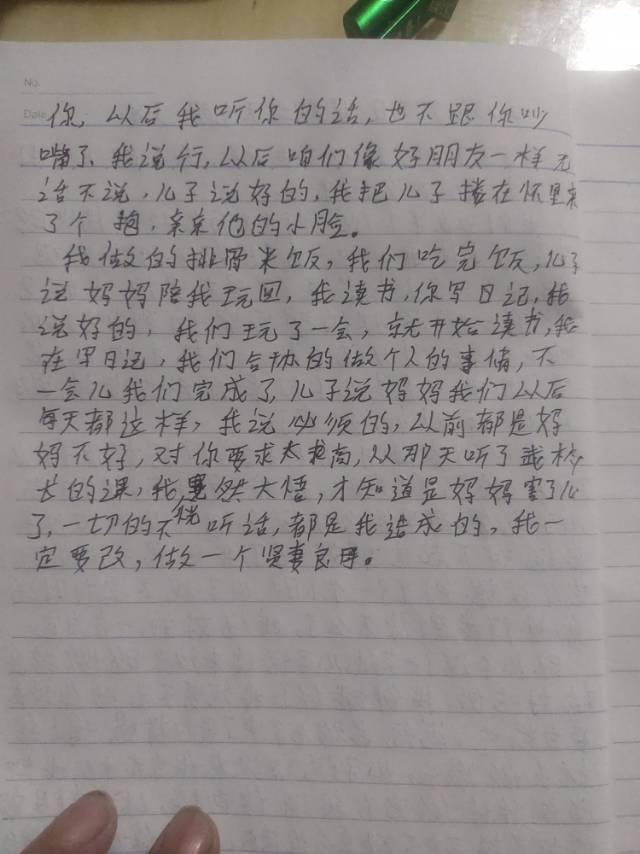 No.
Date
你,以后我听你的话,也不跟你吵
嘴了,我说行,以后咱们像好朋友一样无
话不说,儿子说好的,我把儿子搂在怀里来
了个抱,亲亲他的小脸。
我做的排骨米饭,我们吃完饭,儿子
说妈妈陪我玩回,我读书,你写日记,我
说好的,我们玩了一会,就开始读书,我
在写日记,我们合协的做个人的事情,不
一会儿我们完成了,儿子说妈妈我们以后
每天都这样,我说必须的,以前都是妈
妈不好,对你要求太高,从那天听了
长的课,我然大悟,才知道是妈妈害了儿
了,一切的不听话,都是我造成的,我一
定要改,做一个贤妻良母。